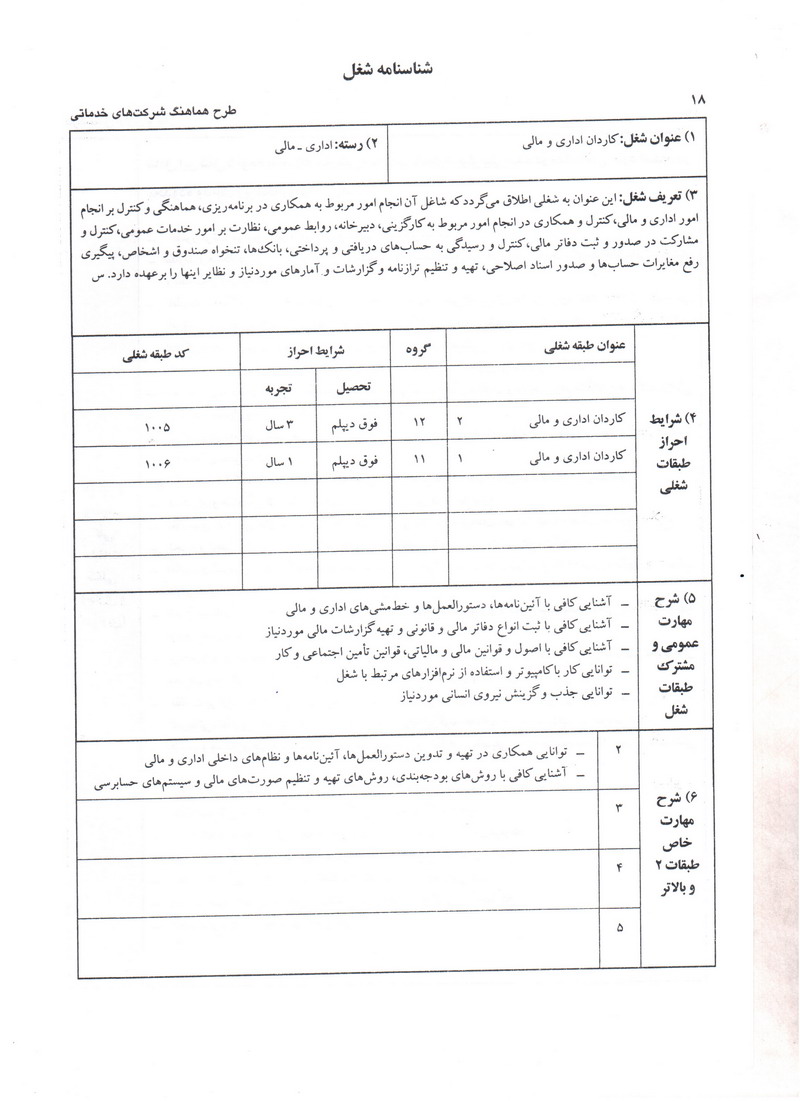 شناسنامه شغل
۱۸
طرح هماهنگ شرکت‌های خدماتی
۱) عنوان شغل: کاردان اداری و مالی
۲) رسته: اداری ـ مالی
۳) تعریف شغل: این عنوان به شغلی اطلاق می‌گردد که شاغل آن انجام امور مربوط به همکاری در برنامه‌ریزی، هماهنگی و کنترل بر انجام
امور اداری و مالی، کنترل و همکاری در انجام امور مربوط به کارگزینی، دبیرخانه، روابط عمومی، نظارت بر امور خدمات عمومی، کنترل و
مشارکت در صدور و ثبت دفاتر مالی، کنترل و رسیدگی به حساب‌های دریافتی و پرداختی، بانک‌ها، تنخواه صندوق و اشخاص، پیگیری
رفع مغایرات حساب‌ها و صدور اسناد اصلاحی، تهیه و تنظیم ترازنامه و گزارشات و آمارهای موردنیاز و نظایر اینها را برعهده دارد. س
۴) شرایط
احراز
طبقات
شغلی
عنوان طبقه شغلی
گروه
شرایط احراز
کد طبقه شغلی
تحصیل
تجربه
کاردان اداری و مالی ۲ ۱۲ فوق دیپلم ۳ سال ۱۰۰۵
کاردان اداری و مالی ۱ ۱۱ فوق دیپلم ۱ سال ۱۰۰۶
۵) شرح
مهارت
عمومی و
مشترک
طبقات
شغل
ـ آشنایی کافی با آئین‌نامه‌ها، دستورالعمل‌ها و خط‌مشی‌های اداری و مالی
ـ آشنایی کافی با ثبت انواع دفاتر مالی و قانونی و تهیه گزارشات مالی موردنیاز
ـ آشنایی کافی با اصول و قوانین مالی و مالیاتی، قوانین تأمین اجتماعی و کار
ـ توانایی کار با کامپیوتر و استفاده از نرم‌افزارهای مرتبط با شغل
ـ توانایی جذب و گزینش نیروی انسانی موردنیاز
۶) شرح
مهارت
خاص
طبقات ۲
و بالاتر
۲
ـ توانایی همکاری در تهیه و تدوین دستورالعمل‌ها، آئین‌نامه‌ها و نظام‌های داخلی اداری و مالی
ـ آشنایی کافی با روش‌های بودجه‌بندی، روش‌های تهیه و تنظیم صورت‌های مالی و سیستم‌های حسابرسی
۳
۴
۵